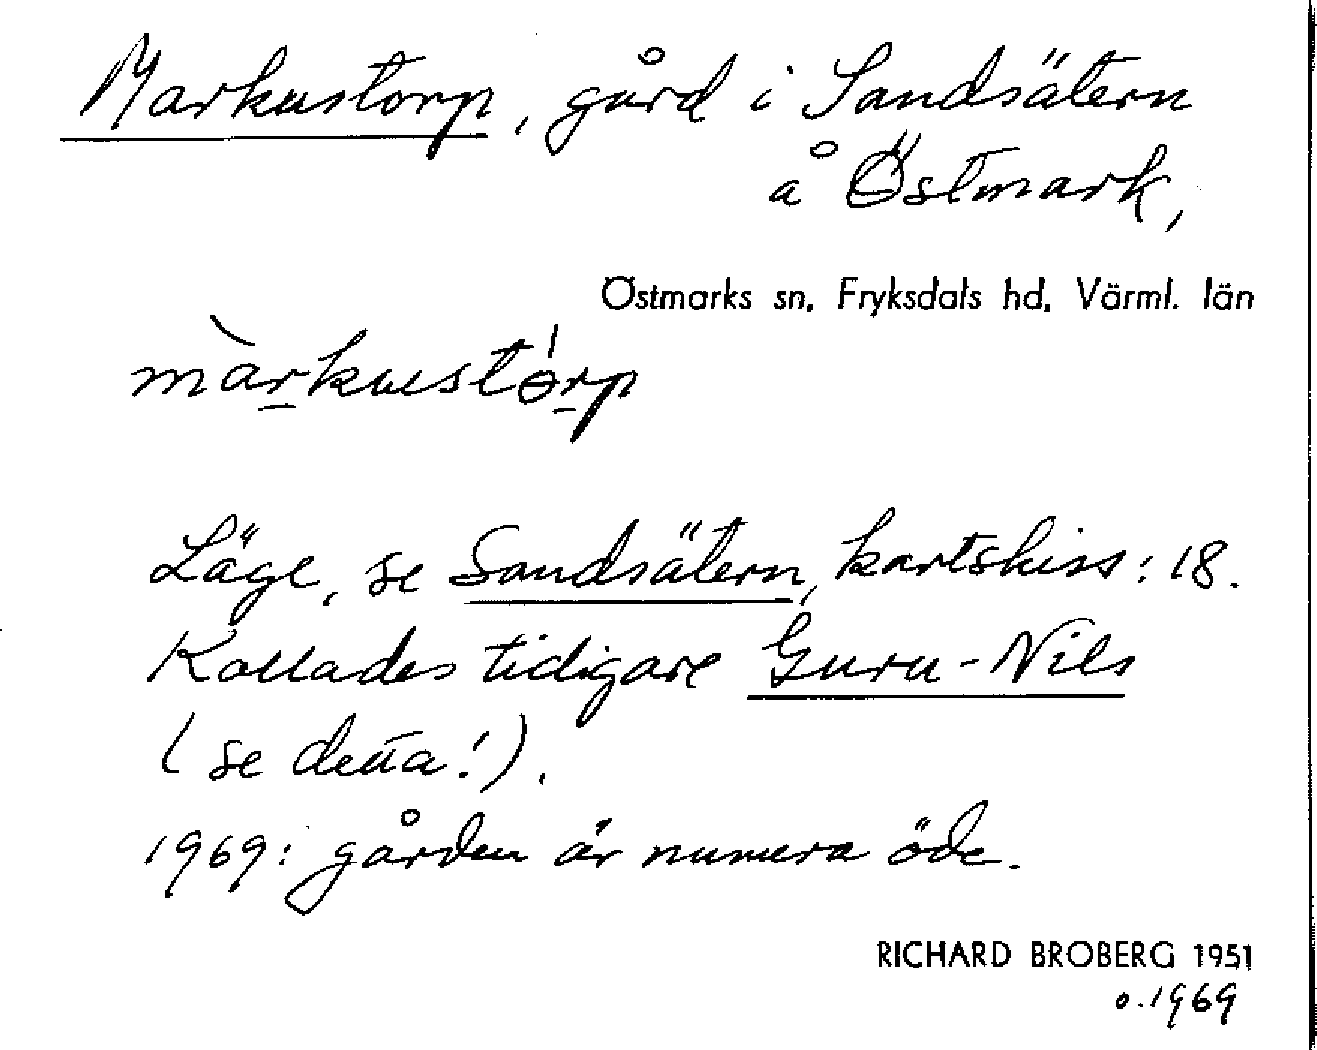 Markustorp, gård i Sandsätern
å Östmark,
Östmarks sn. Fryksdals hd. Värml. län
màrkustórp
Läge, se Sandsätern, kartskiss: 18.
Kallades tidigare Guru-Nils
(se detta!).
1969: gården är numera öde.
RICHARD BROBERG 1951
o. 1969